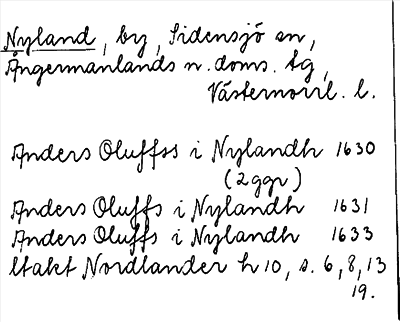 Nyland, by, Sidensjö sn,
Ångermanlands n. doms. tg,
Västernorrl. l.
Anders Oluffss i Nylandh 1630
(2 ggr)
Anders Oluffs i Nylandh 1631
Anders Oluffs i Nylandh 1633
ltakt Nordlander h 10, s. 6, 8, 13
19.